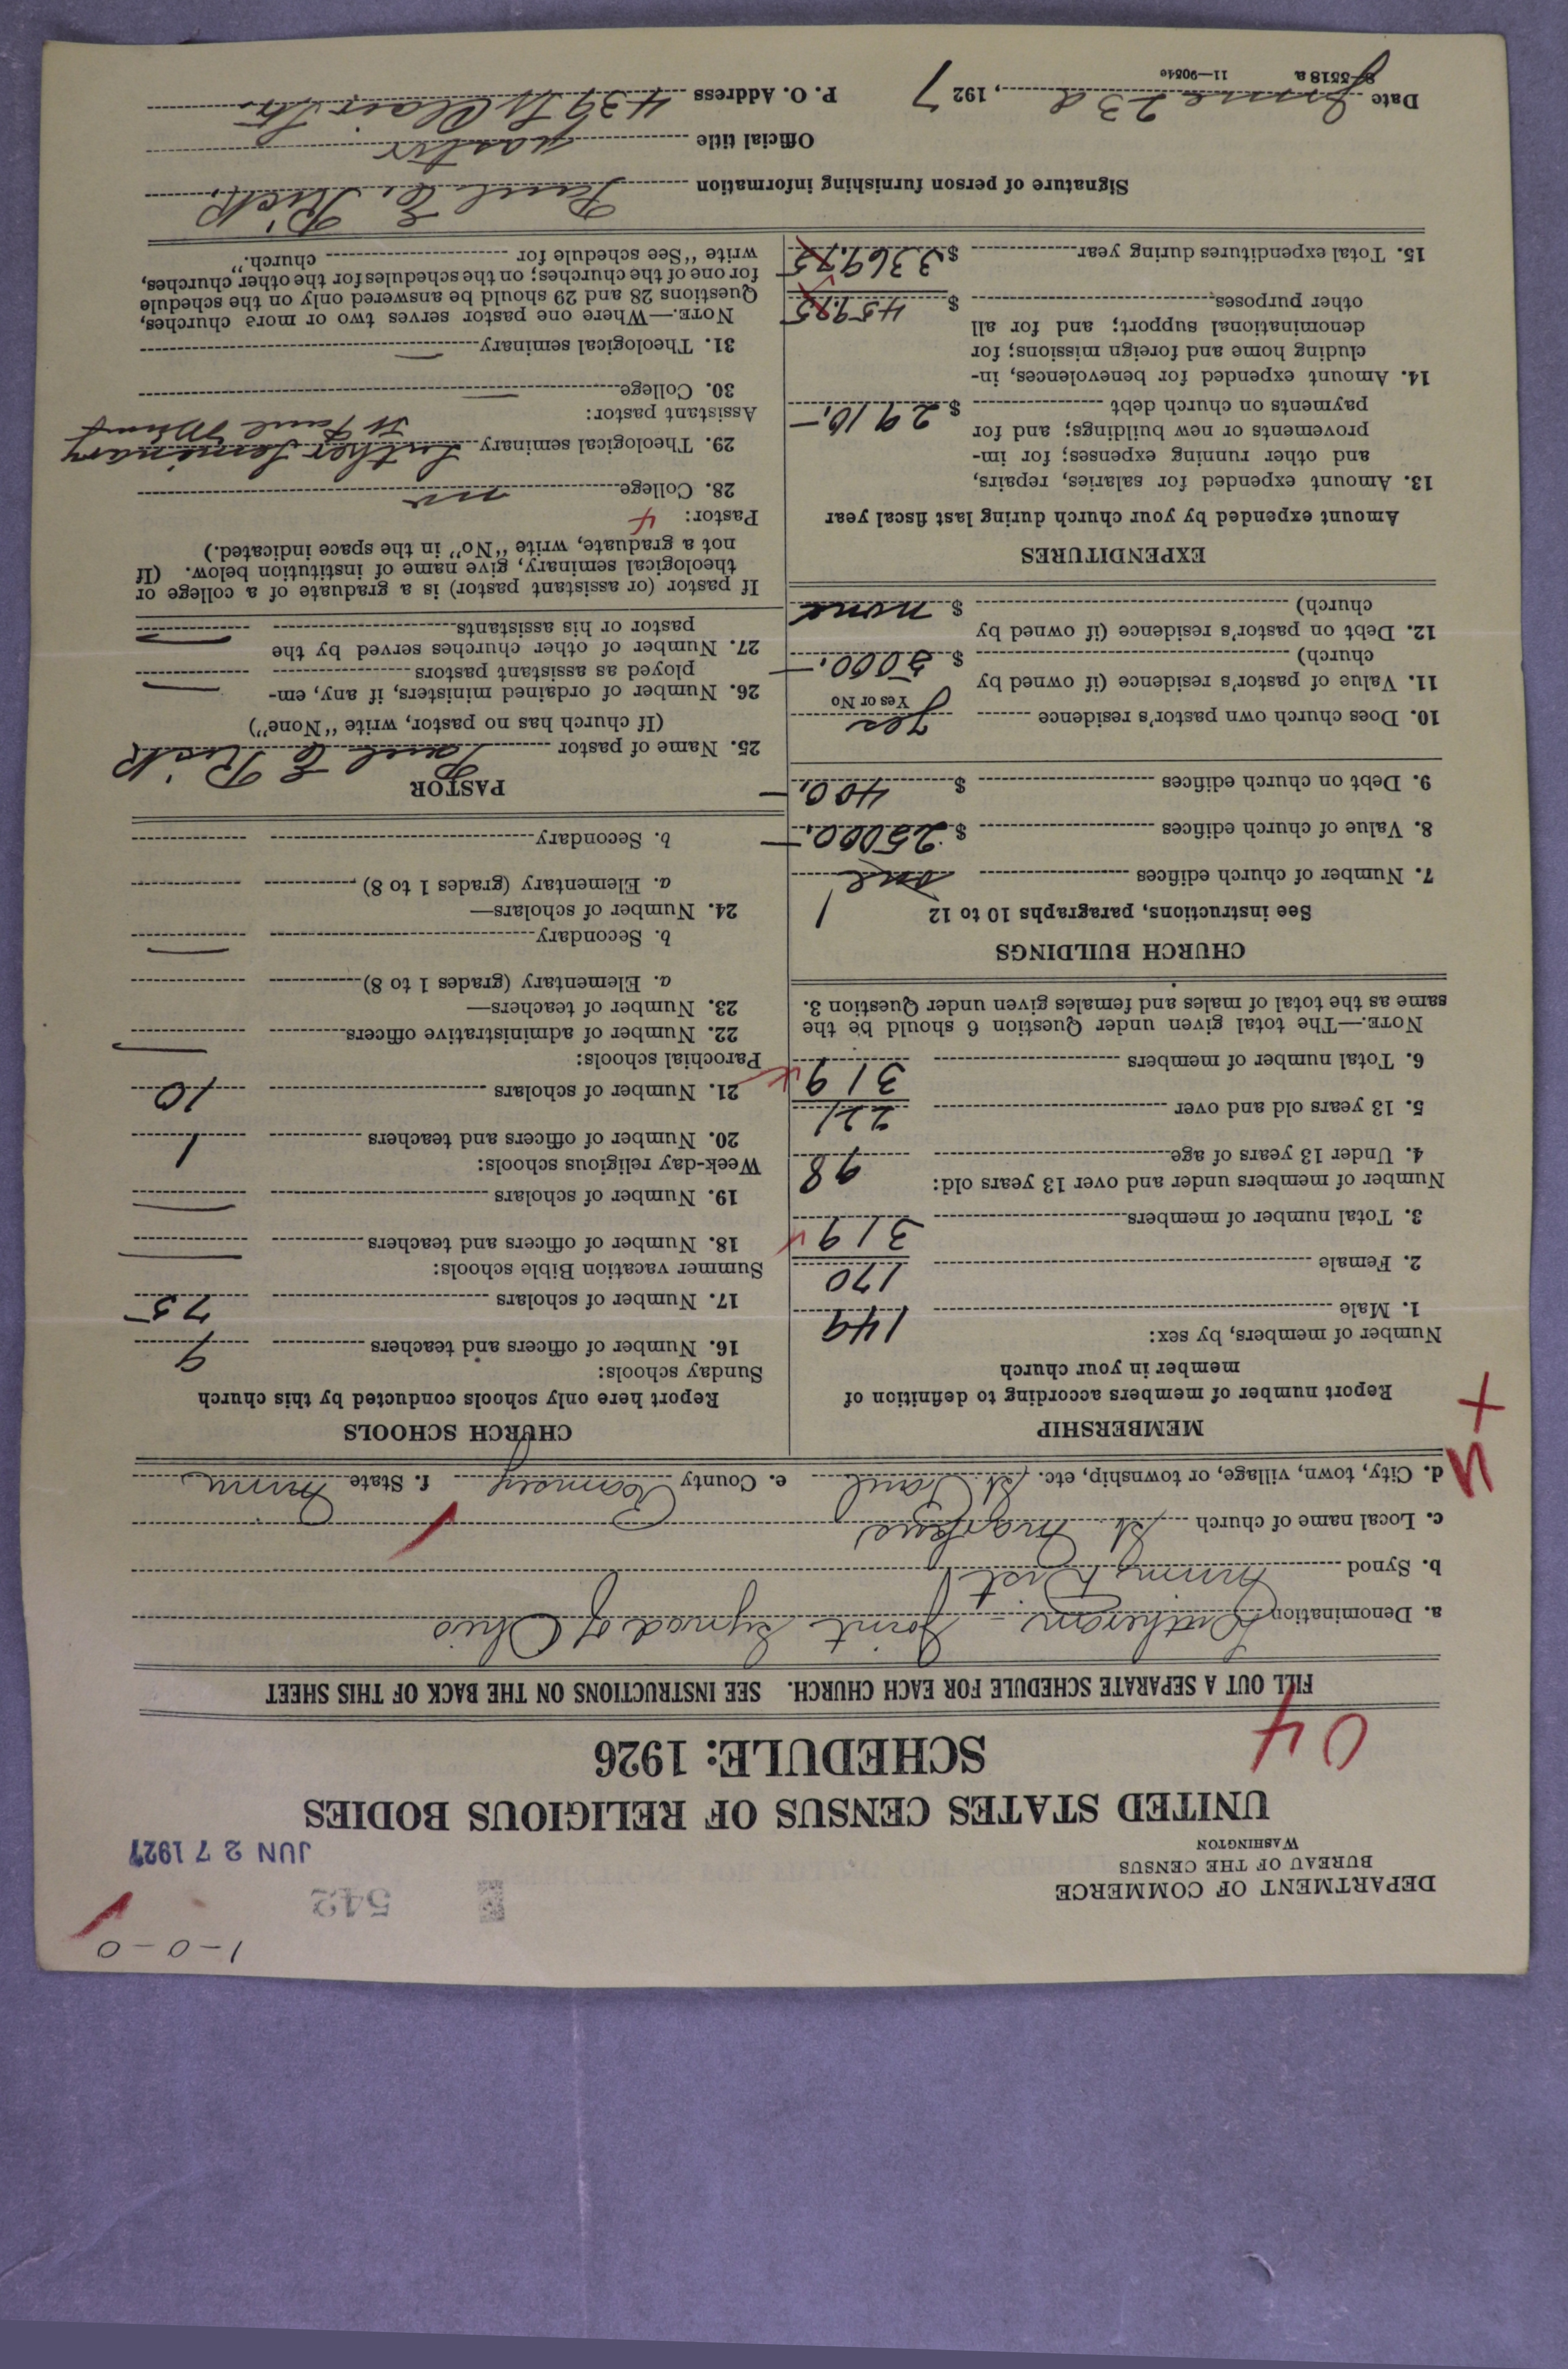 1-0-0
542
JUN 27 1927
DEPARTMENT OF COMMERCE
BUREAU OF THE CENSUS
WASHINGTON
UNITED STATES CENSUS OF RELIGIOUS BODIES
SCHEDULE: 1926
04
FILL OUT A SEPARATE SCHEDULE FOR EACH CHURCH. SEE INSTRUCTIONS ON THE BACK OF THIS SHEET
a. Denomination Lutheran - Joint Synod of Ohio
b. Synod Minn. Dist.
c. Local name of church St. Markus
d. City, town, village, or township, etc. St. Paul e. County Ramsey f. State Minn
MEMBERSHIP
Report number of members according to definition of
member in your church
Number of members, by sex:
1. Male 149
2. Female 170
3. Total number of members 319
Number of members under and over 13 years old:
4. Under 13 years of age 98
5. 13 years old and over 221
6. Total number of members 319
NOTE.—The total given under Question 6 should be the
same as the total of males and females given under Question 3.
CHURCH BUILDINGS
See instructions, paragraphs 10 to 12
7. Number of church edifices one 1
8. Value of church edifices $ 25000.—
9. Debt on church edifices $ 400.—
10. Does church own pastor's residence yes
Yes or No
11. Value of pastor's residence (if owned by
church) $ 5000.—
12. Debt on pastor's residence (if owned by
church) $ none
EXPENDITURES
Amount expended by your church during last fiscal year
13. Amount expended for salaries, repairs,
and other running expenses; for im-
provements or new buildings; and for
payments on church debt $ 2910.—
14. Amount expended for benevolences, in-
cluding home and foreign missions; for
denominational support; and for all
other purposes $
15. Total expenditures during year $
CHURCH SCHOOLS
Report here only schools conducted by this church
Sunday schools:
16. Number of officers and teachers 9
17. Number of scholars 75
Summer vacation Bible schools:
18. Number of officers and teachers —
19. Number of scholars —
Week-day religious schools:
20. Number of officers and teachers 1
21. Number of scholars 10
Parochial schools:
22. Number of administrative officers —
23. Number of teachers—
a. Elementary (grades 1 to 8)
b. Secondary —
24. Number of scholars—
a. Elementary (grades 1 to 8)
b. Secondary
PASTOR
25. Name of pastor Paul E Rick
(If church has no pastor, write "None")
26. Number of ordained ministers, if any, em-
ployed as assistant pastors —
27. Number of other churches served by the
pastor or his assistants —
If pastor (or assistant pastor) is a graduate of a college or
theological seminary, give name of institution below. (If
not a graduate, write "No" in the space indicated.)
Pastor: 4
28. College no
29. Theological seminary Luther Seminary
St Paul Minn
Assistant pastor:
30. College —
31. Theological seminary —
NOTE.—Where one pastor serves two or more churches,
Questions 28 and 29 should be answered only on the schedule
for one of the churches; on the schedules for the other churches,
write "See schedule for church."
Signature of person furnishing information Paul E. Rick
Official title pastor
Date June 23d, 1927 P. O. Address 439 St Clair Str.
8-5518a 11-9054c